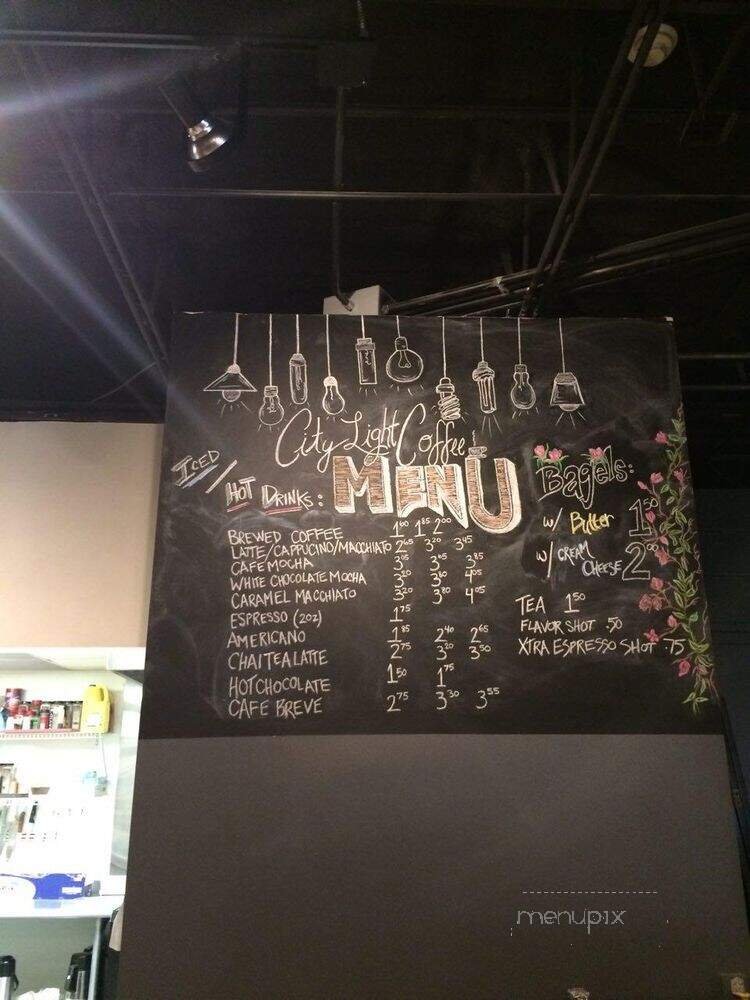 City Light Coffee
MENU
ICED / HOT DRINKS:
BREWED COFFEE 1.60 1.85 2.00
LATTE/CAPPUCINO/MACCHIATO 2.65 3.20 3.45
CAFE MOCHA 3.05 3.65 3.85
WHITE CHOCOLATE MOCHA 3.20 3.80 4.05
CARAMEL MACCHIATO 3.20 3.80 4.05
ESPRESSO (2OZ) 1.75
AMERICANO 1.85 2.40 2.65
CHAI TEA LATTE 2.75 3.20 3.50
HOT CHOCOLATE 1.50 1.75
CAFE BREVE 2.75 3.30 3.55
Bagels:
w/ Butter 1.50
w/ CREAM
CHEESE 2.00
TEA 1.50
FLAVOR SHOT .50
XTRA ESPRESSO SHOT .75
menupix